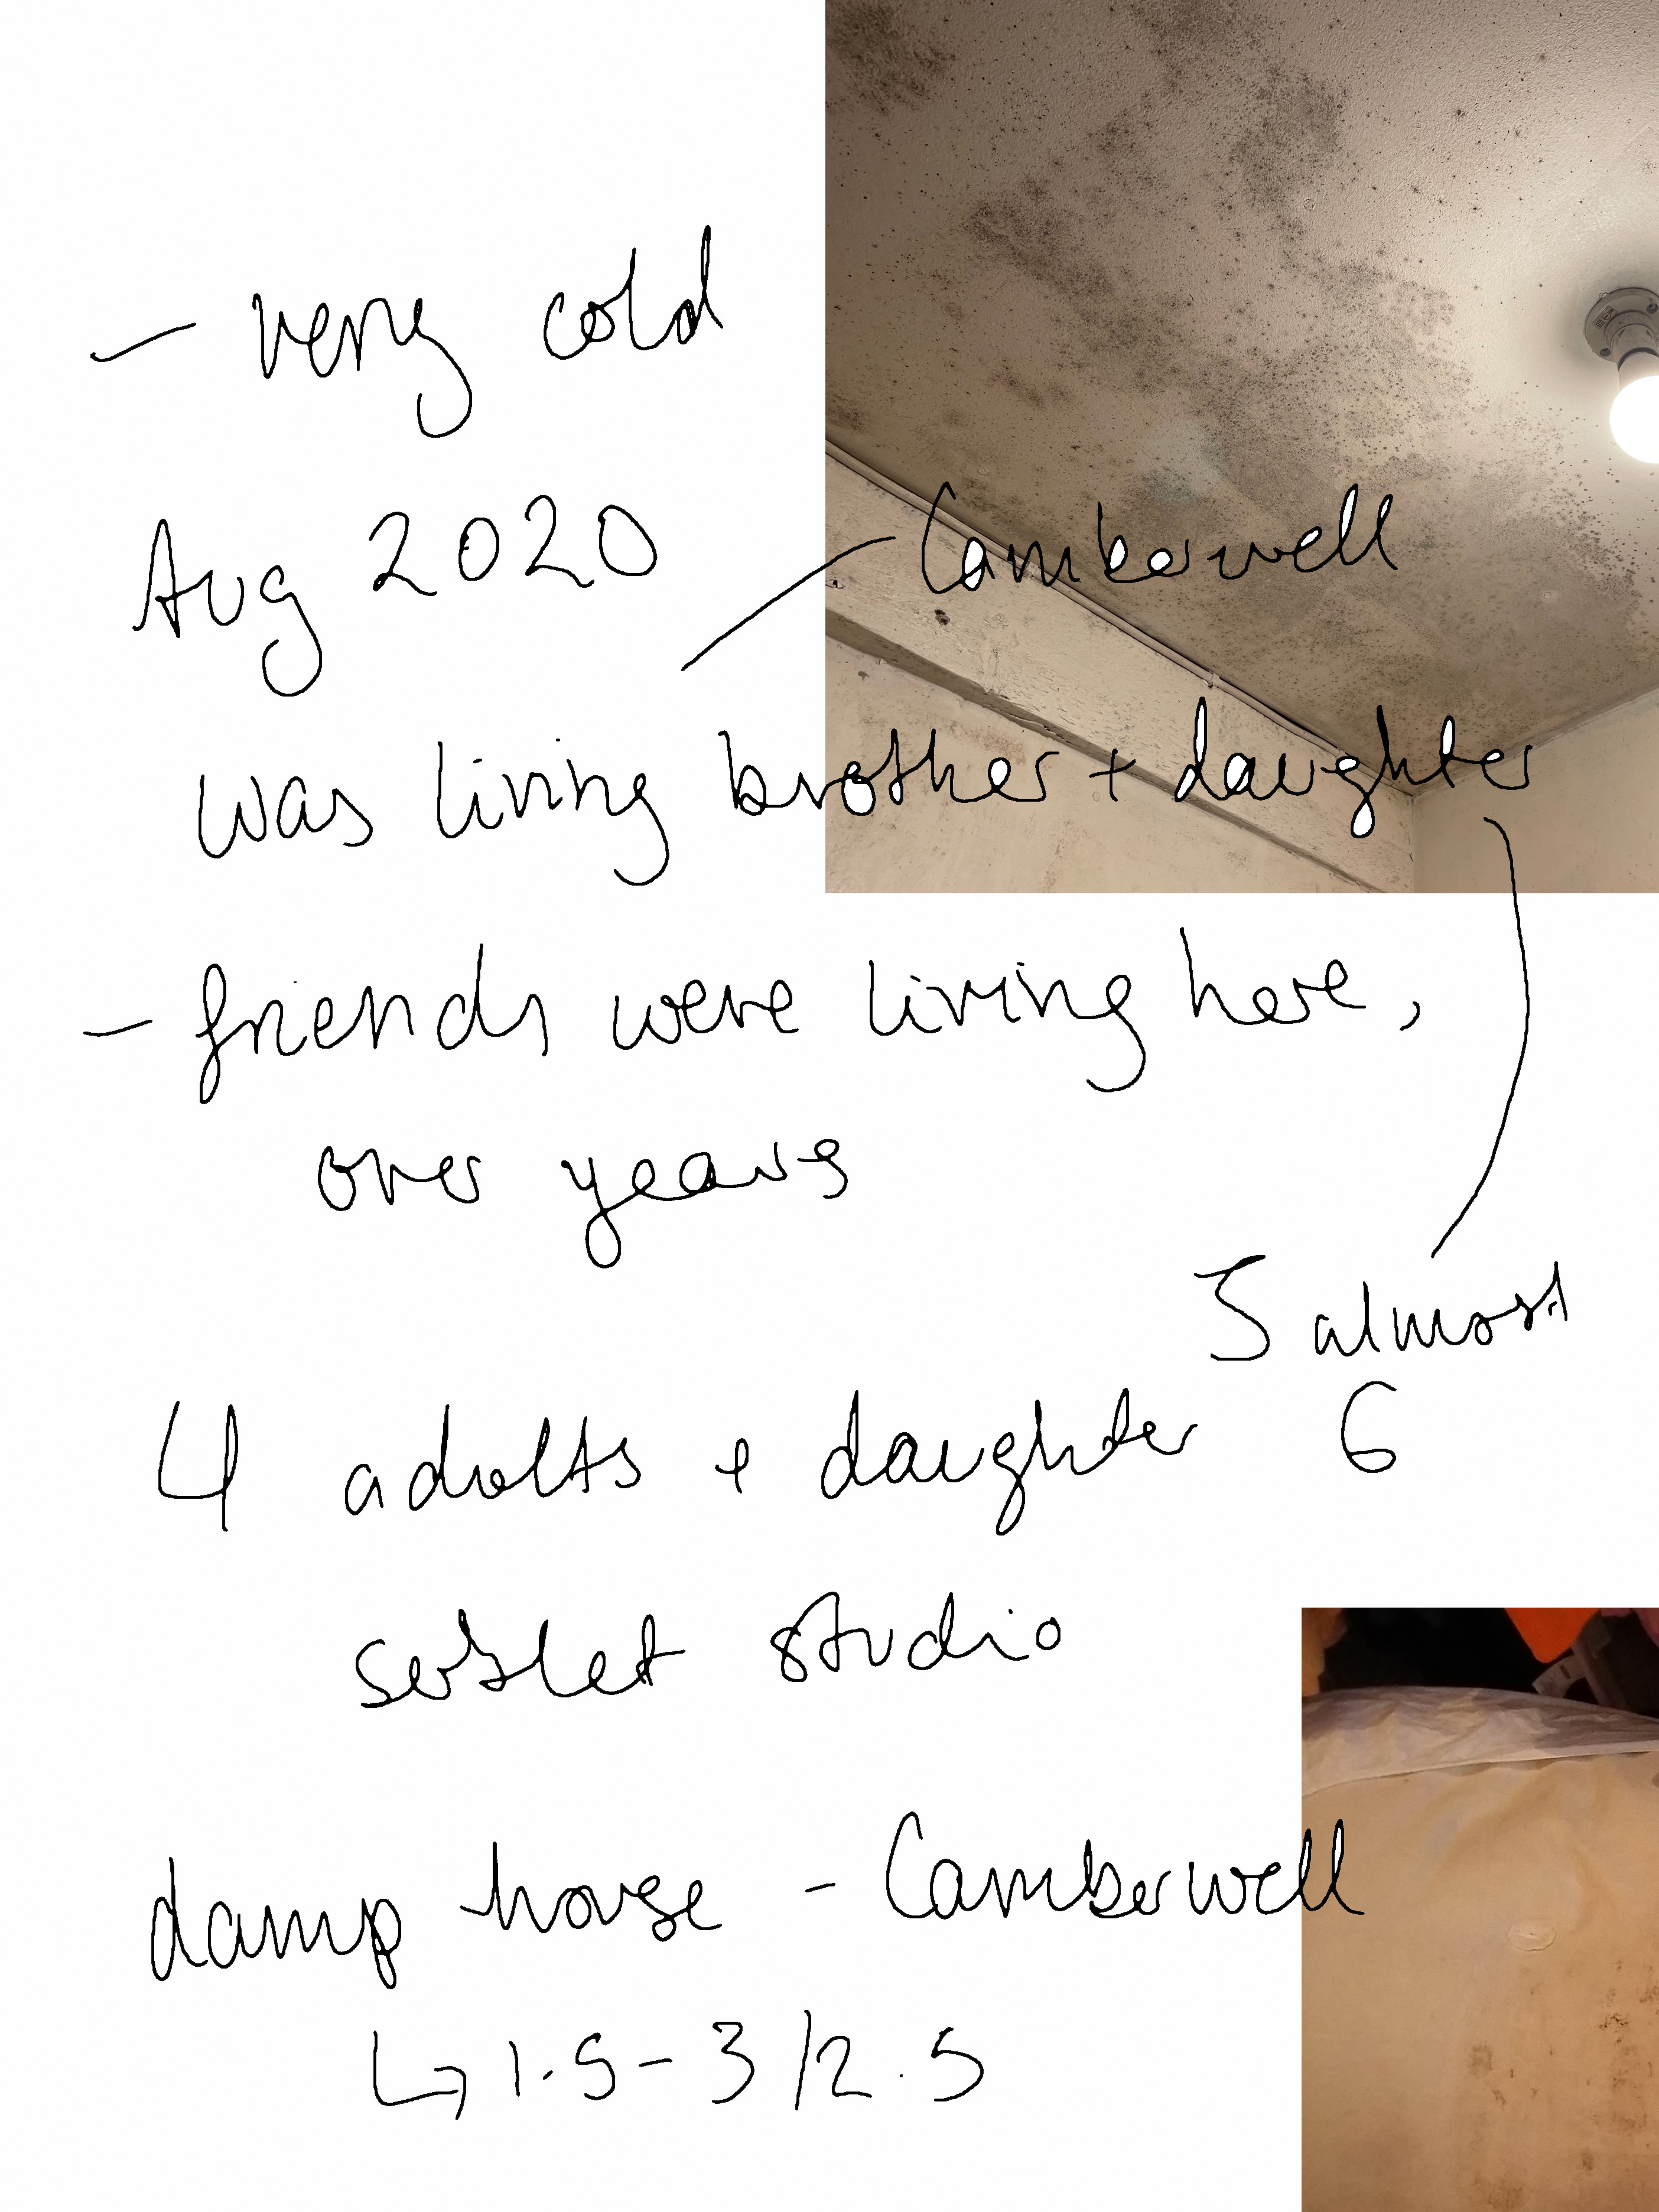 - very cold
Aug 2020
- Camberwell
was living brother + daughter
- friends were living here,
over years
5 almost
6
4 adults + daughter
sublet studio
damp house - Camberwell
↳ 1.5 - 3/2.5